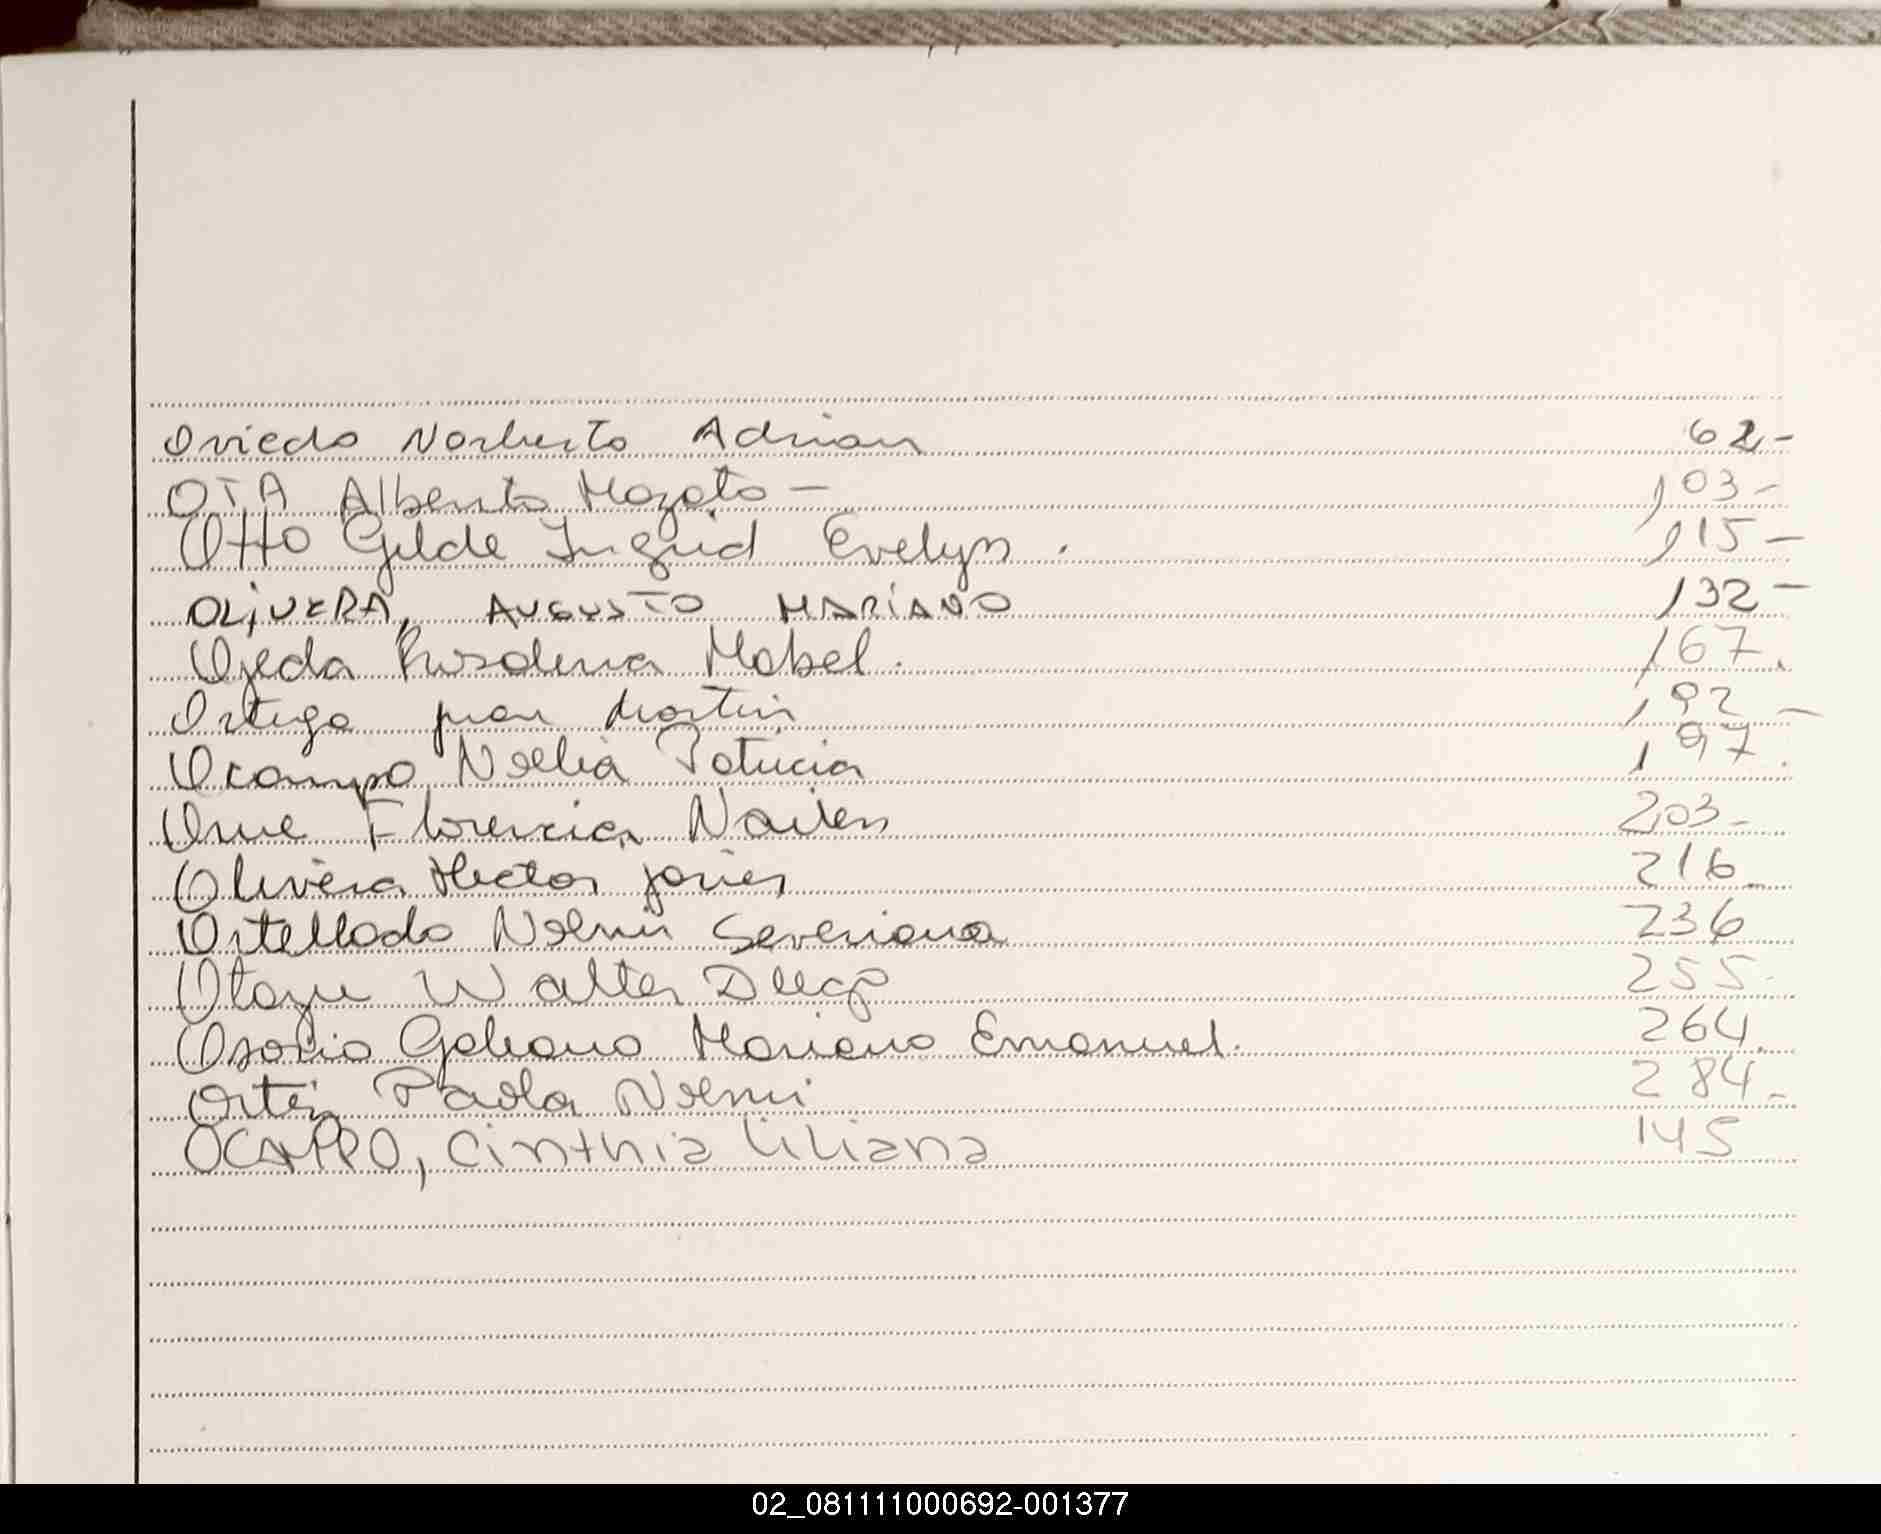 Oviedo Norberto Adrian 62-
OTA Alberto Mazato - 103-
Otto Gilde Ingrid Evelyn . 115-
OLiVERA, AUGUSTO MARiANO 132-
Ojeda Mabel. 167.
Ortega juan Martin 192-
Ocampo Noelia Patricia 197.
Orue Florencia Nailen 203-
Olivera Hector javier 216-
Ortellado Noemi Severiana 236
Walter Diego 255-
Osorio Galeano Mariano Emanuel. 264.
Ortiz Paola Noemi 284-
OCAMPO, Cinthia liliana 145
02_081111000692-001377